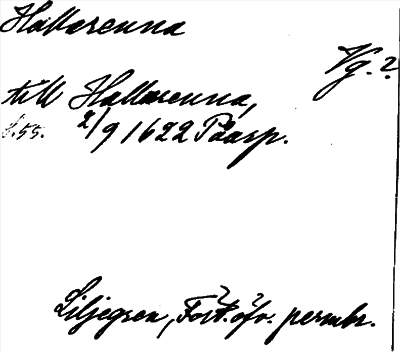 Hallarenna
Vg. ?
till Hallarenna,
s. 55. 2/9 1622 Påarp.
Liljegren, Fört. öfv. permbr.